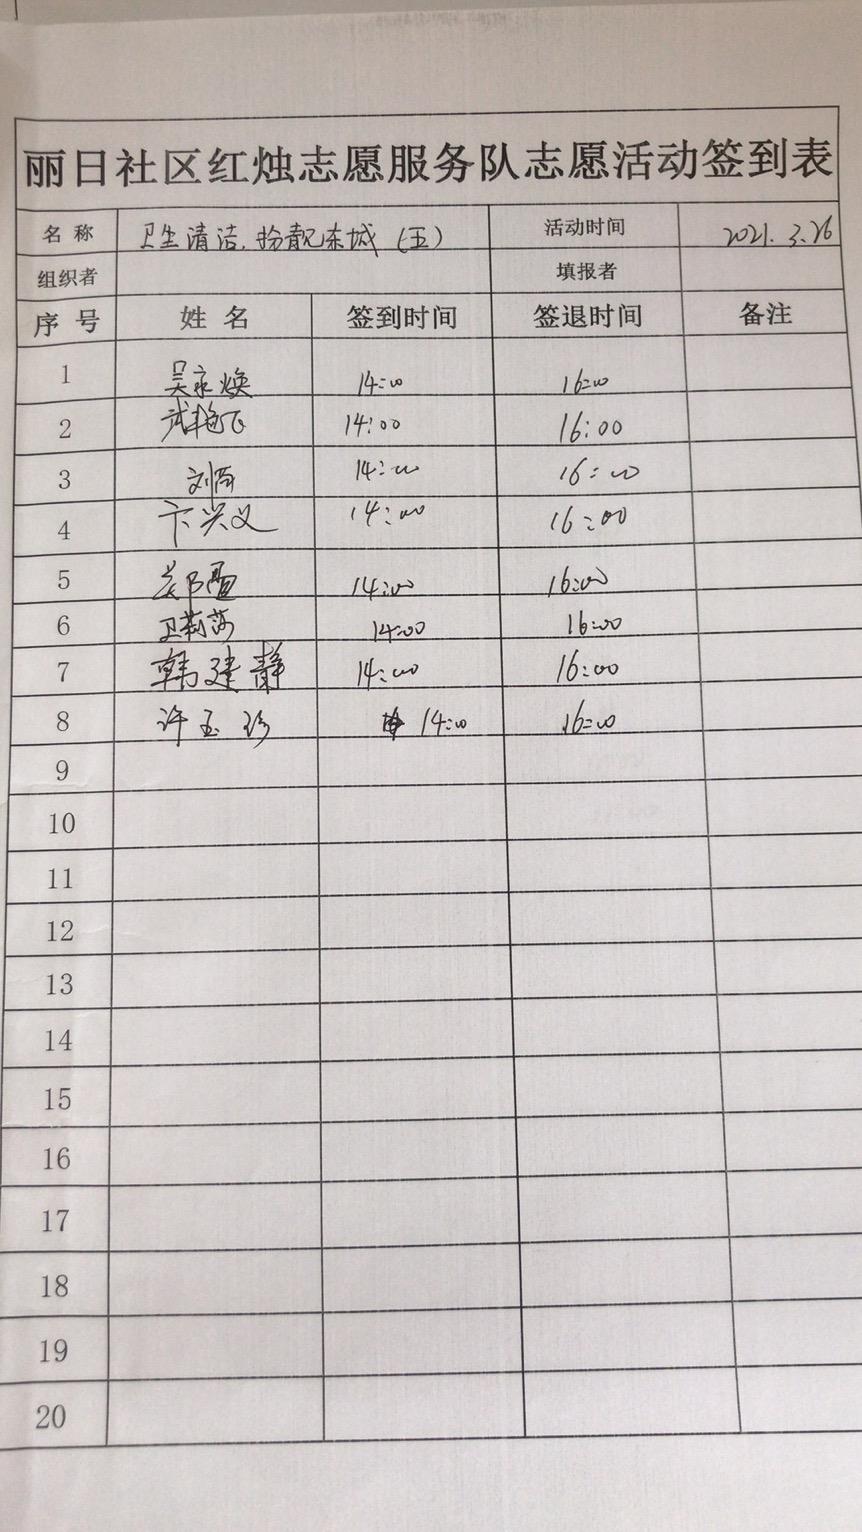 丽日社区红烛志愿服务队志愿活动签到表
名称 卫生清洁.扮靓东城(五) 活动时间 2021.3.26
组织者 填报者
序号 姓名 签到时间 签退时间 备注
1 吴永焕 14:00 16:00
2 武艳飞 14:00 16:00
3 14:00 16:00
4 卞兴义 14:00 16:00
5 14:00 16:00
6 卫莉莎 14:00 16:00
7 韩建静 14:00 16:00
8 许玉珍 14:00 16:00
9
10
11
12
13
14
15
16
17
18
19
20